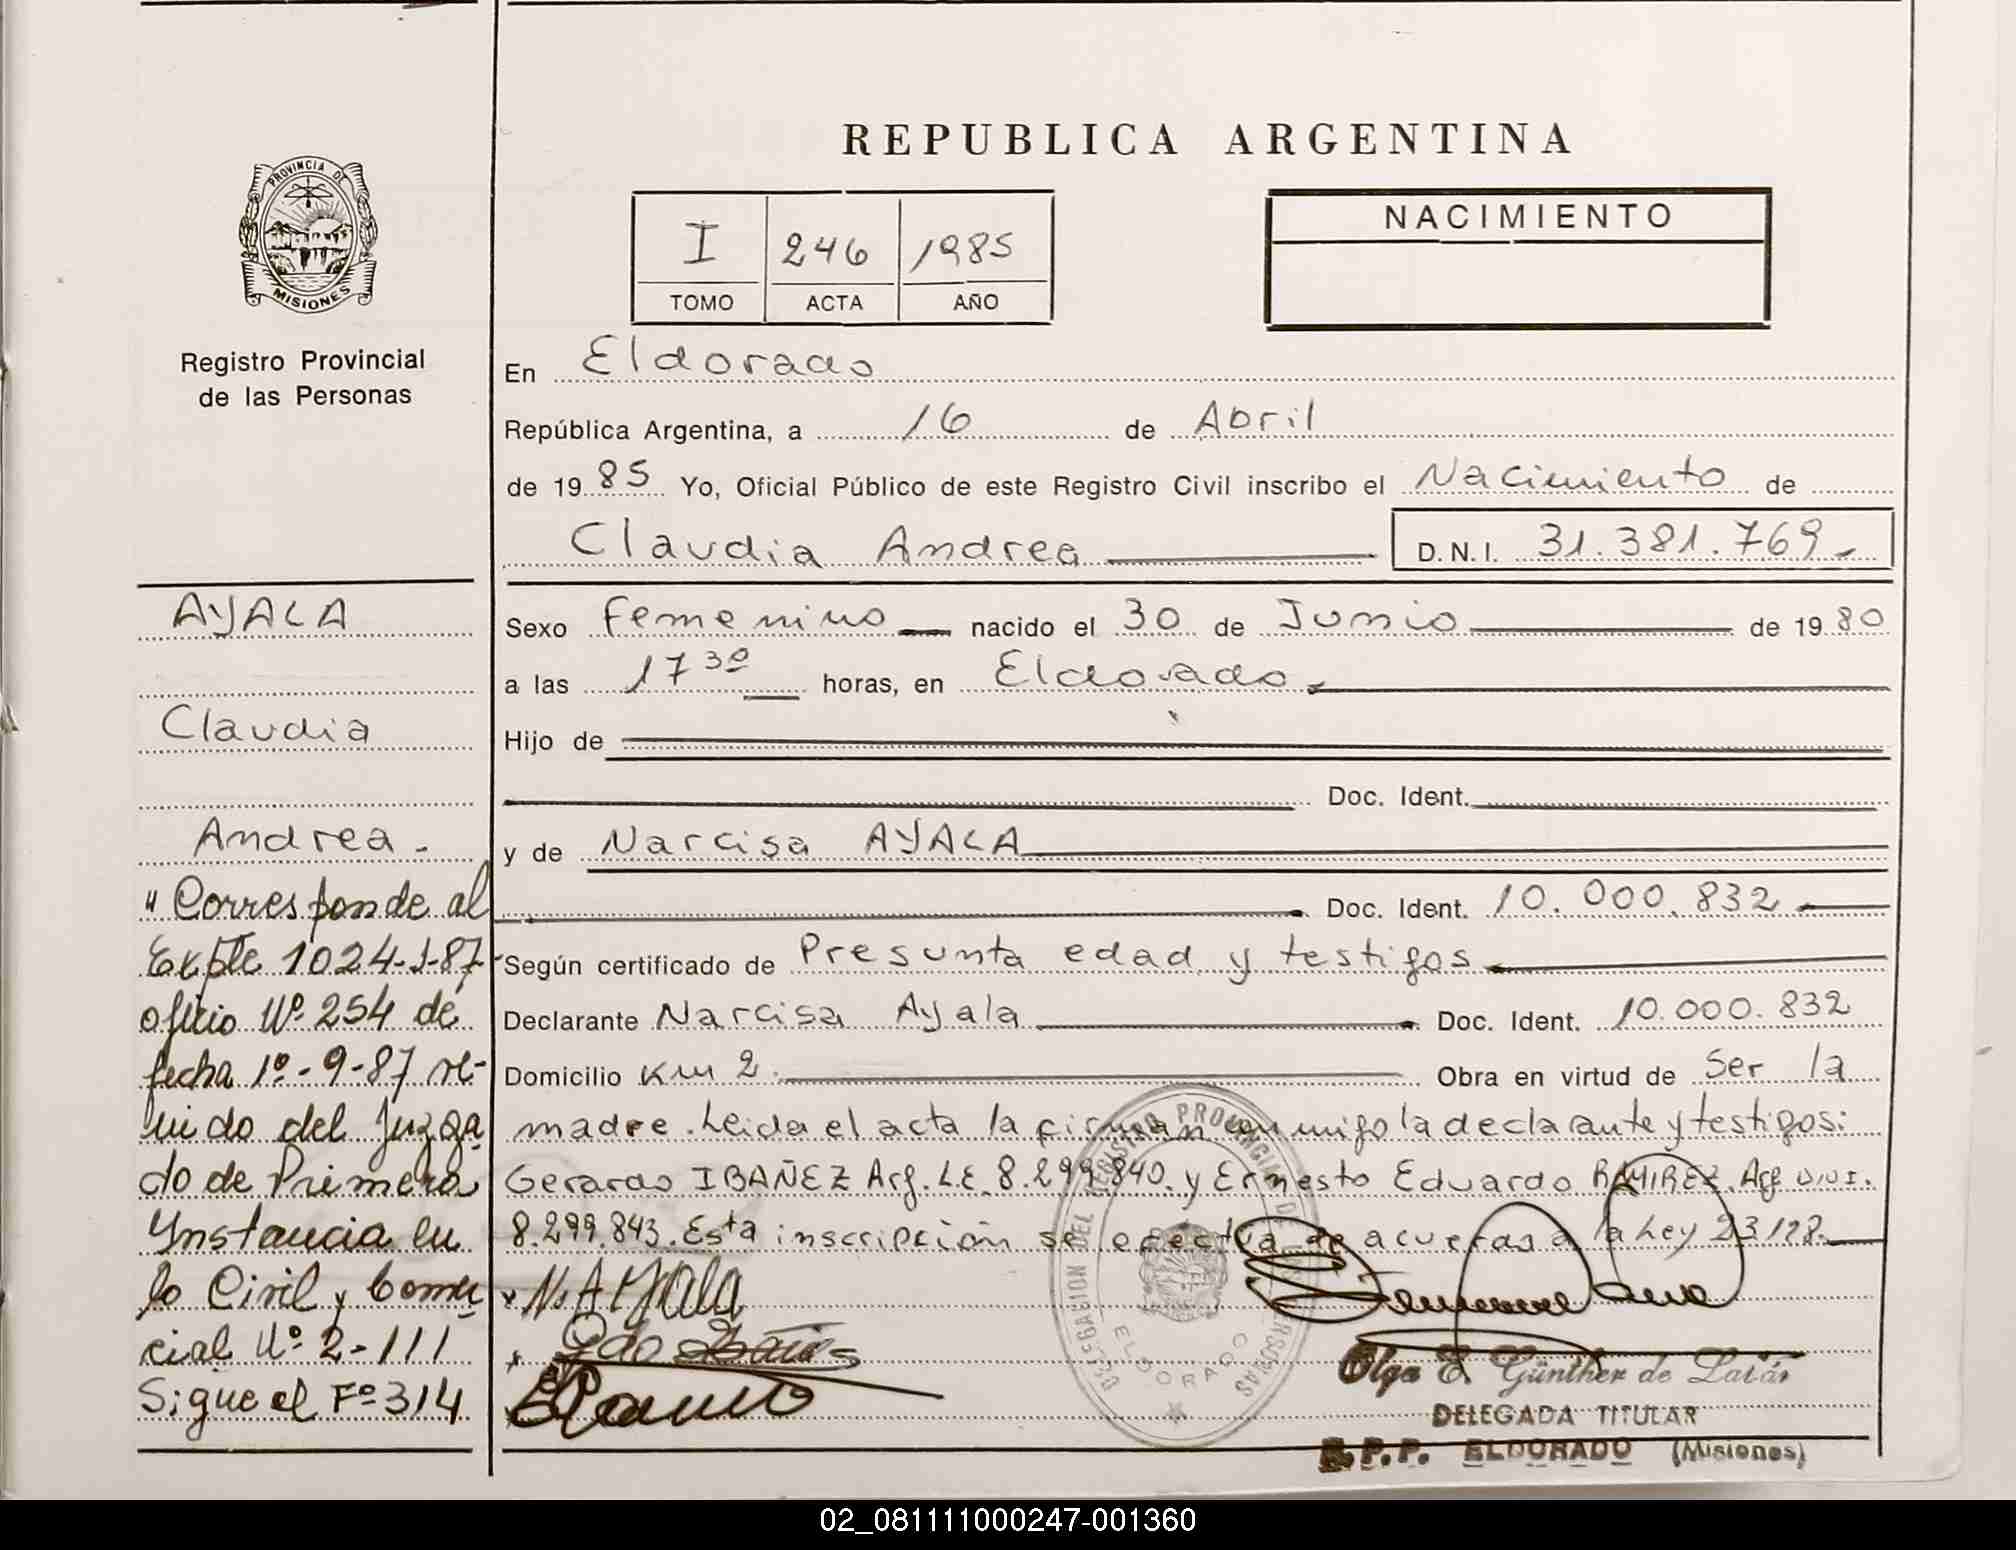 REPUBLICA ARGENTINA
PROVINCIA DE
MISIONES
Registro Provincial
de las Personas
I 246 1985
TOMO ACTA AÑO
NACIMIENTO
En Eldorado
República Argentina, a 16 de Abril
de 1985 Yo, Oficial Público de este Registro Civil inscribo el Nacimiento de
Claudia Andrea D.N.I. 31.381.769
Sexo Femenino nacido el 30 de Junio de 1980
a las 17 30 horas, en Eldorado
Hijo de
Doc. Ident.
y de Narcisa AYALA
Doc. Ident. 10.000.832
Según certificado de Presunta edad y testigos
Declarante Narcisa Ayala Doc. Ident. 10.000.832
Domicilio Km 2. Obra en virtud de Ser la
madre. Leida el acta la firman conmigo la declarante y testigos:
Gerardo IBAÑEZ Arg. L.E. 8.299.840. y Ernesto Eduardo RAMIREZ. Arg. D.N.I.
8.299.843. Esta inscripción se efectua de acuerdo a la Ley 23128.
N. AYala
Olga E. Günther de
DELEGADA TITULAR
R.P.P. ELDORADO (Misiones)
DELEGACION DEL REGISTRO PROVINCIAL DE LAS PERSONAS
ELDORADO
AYALA
Claudia
Andrea.
"Corresponde al
Expte 1024-J-87
oficio Nº 254 de
fecha 1º-9-87 re-
nido del Juzga
do de Primera
Ynstancia en
lo Civil y Comer
cial Nº 2-111
Sigue el Fº 314
02_081111000247-001360